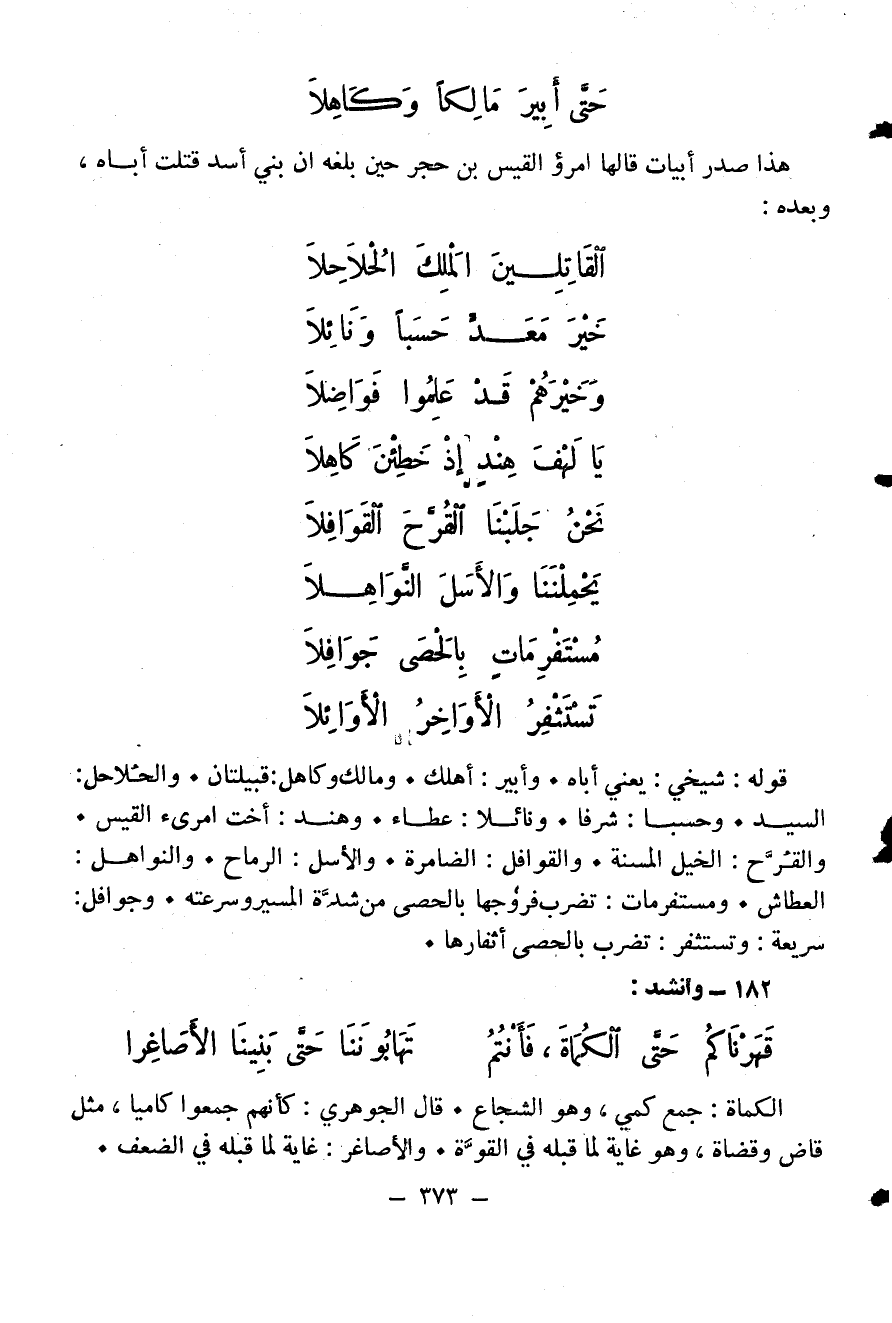 حَتَّى أُبِيرَ مَالِكاً وَكَاهِلاَ
هذا صدر أبيات قالها امرؤ القيس بن حجر حين بلغه ان بني أسد قتلت أباه ،
وبعده :
القَاتِلِينَ المَلِكَ الحُلاَحِلاَ
خَيْرَ مَعَدٍّ حَسَباً وَنَائِلاَ
وَخَيْرَهُمْ قَدْ عَلِمُوا فَوَاضِلاَ
يَا لَهْفَ هِنْدٍ إِذْ خَطِئْنَ كَاهِلاَ
نَحْنُ جَلَبْنَا القُرَّحَ القَوَافِلاَ
يَحْمِلْنَنَا وَالأَسَلَ النَّوَاهِلاَ
مُسْتَفْرِمَاتٍ بِالحَصَى جَوَافِلاَ
تَسْتَثْفِرُ الأَوَاخِرُ الأَوَائِلاَ
قوله : شيخي : يعني أباه • وأبير : أهلك • ومالك وكاهل : قبيلتان • والحُلاحل :
السيد • وحسبا : شرفا • ونائلا : عطاء • وهند : أخت امرىء القيس •
والقُرَّح : الخيل المسنة • والقوافل : الضامرة • والأسل : الرماح • والنواهل :
العطاش • ومستفرمات : تضرب فروجها بالحصى من شدَّة المسير وسرعته • وجوافل :
سريعة : وتستثفر : تضرب بالحصى أثفارها •
١٨٢ – وأنشد :
قَهَرْنَاكُمُ حَتَّى الكُمَاةَ ، فَأَنْتُمُ تَهَابُونَنَا حَتَّى بَنِينَا الأَصَاغِرا
الكماة : جمع كمي ، وهو الشجاع • قال الجوهري : كأنهم جمعوا كاميا ، مثل
قاض وقضاة ، وهو غاية لما قبله في القوَّة • والأصاغر : غاية لما قبله في الضعف •
– ٣٧٣ –